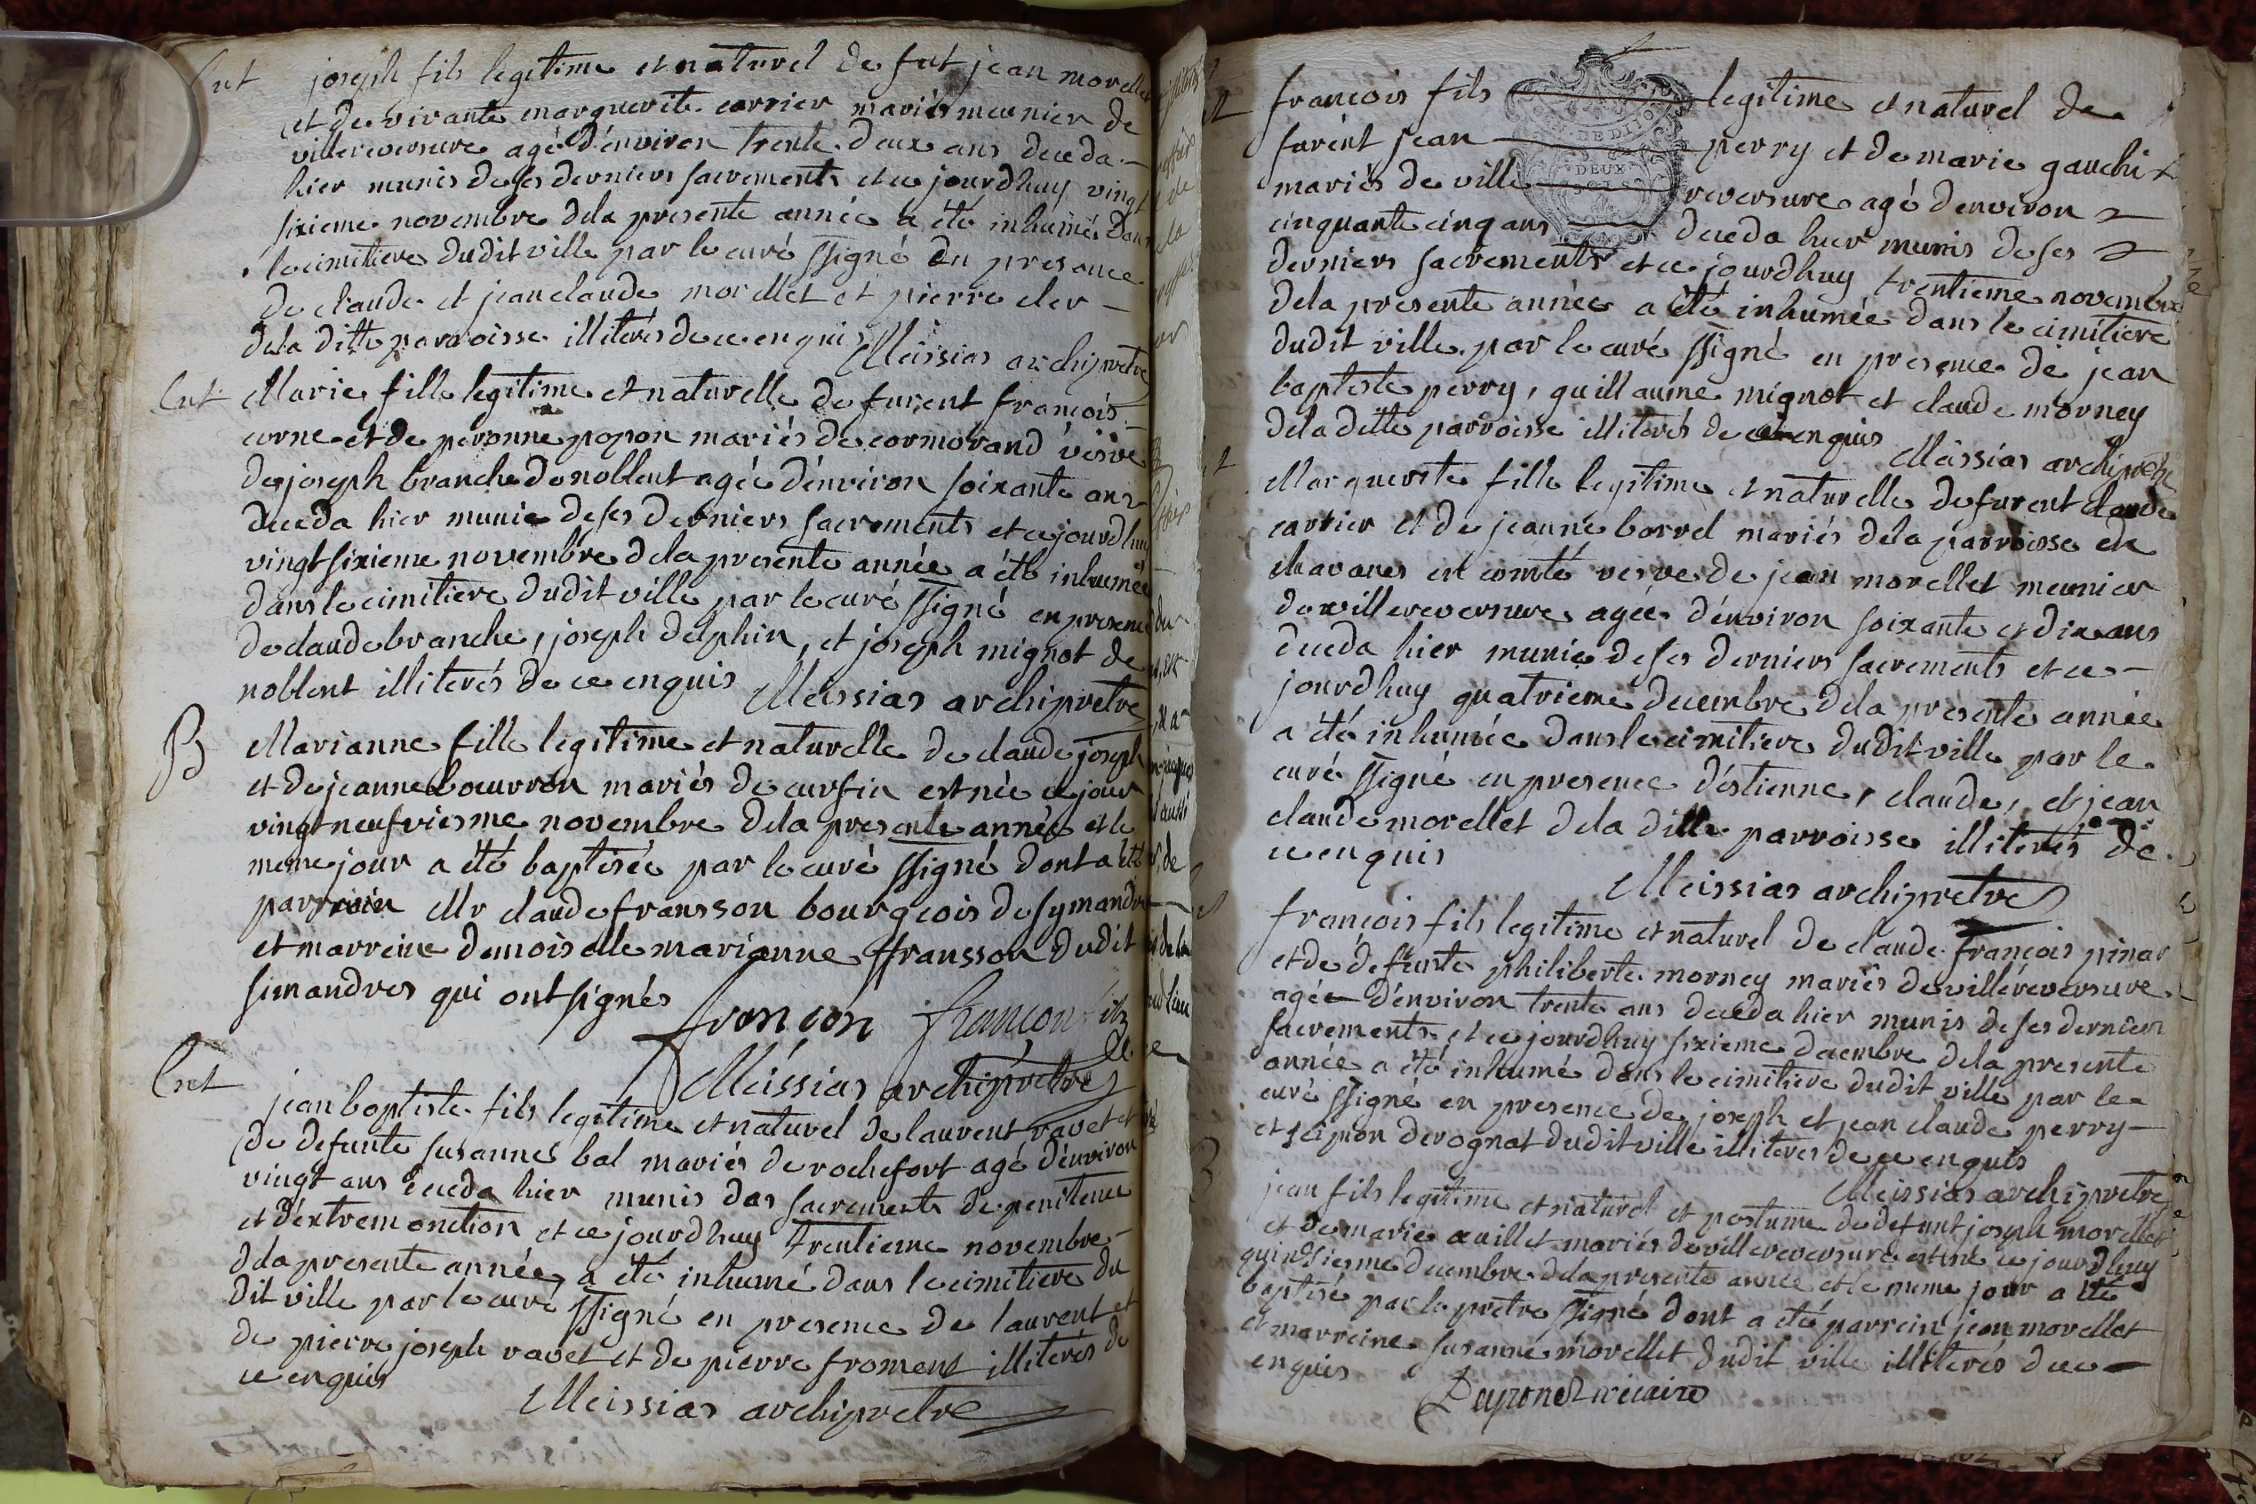 Ent joseph fils legitime et naturel de fut jean morellet
et de vivante marguerite carrier mariés meunier de
villereversure agé d'environ trente deux ans deceda
hier munis de ses derniers sacrements et ce jourdhuy vingt
sixieme novembre dela presente année a été inhumé dans
le cimitiere dudit ville par le curé ssigné en presence
de claude et jean claude morellet et pierre cler
dela ditte parroisse illiterés de ce enquis
Meissias archipretre
Ent Marie fille legitime et naturelle de furent francois
curne et de peronne popon mariés de cormorand vesve
de joseph branche de noblent agée d'environ soixante ans
deceda hier munie de ses derniers sacrements et ce jourdhuy
vingt sixieme novembre dela presente année a été inhumée
dans le cimitiere dudit ville par le curé ssigné en presence
de claude branche, joseph delphin, et joseph mignot de
noblent illiterés de ce enquis Meissias archipretre
B Marianne fille legitime et naturelle de claude joseph
et de jeanne bourron mariés de curfin est née ce jour
vingt neufviesme novembre dela presente année et le
meme jour a été baptisée par le curé ssigné dont a été
parrein Mr claude fransson bourgeois de symandre
et marreine demoiselle marianne ffransson dudit
simandres qui ont signés
françon françon fils
Meissias archipretre
Ent jean baptiste fils legitime et naturel de laurent ravet et
de defunte susanne bal mariés de rochefort agé d'environ
vingt ans deceda hier munis des sacrements de penitence
et d'extremonction et ce jourdhuy trentieme novembre
dela presente année a été inhumé dans le cimitiere du
dit ville par le curé ssigné en presence de laurent et
de pierre joseph ravet et de pierre froment illiterés de
ce enquis
Meissias archipretre
DEUX
francois fils legitime et naturel de
furent jean perry et de marie gauchi
mariés de ville reversure agé d'environ
cinquante cinq ans deceda hier munis de ses
derniers sacrements et ce jourdhuy trentieme novembre
dela presente année a été inhumée dans le cimitiere
dudit ville par le curé ssigné en presence de jean
baptiste perry, guillaume mignot et claude morney
dela ditte parroisse illiterés de ce enquis
Meissias archipretre
Marguerite fille legitime et naturelle de furent claude
carrier et de jeanne borrel mariés dela parroisse de
chavanes en comté vesve de jean morellet meunier
de villereversure agée d'environ soixante et dix ans
deceda hier munie de ses derniers sacrements et ce
jourdhuy quatrieme decembre dela presente année
a été inhumée dans le cimitiere dudit ville par le
curé ssigné en presence d'estienne, claude, et jean
claude morellet dela ditte parroisse illiterés de
ce enquis
Meissias archipretre
françois fils legitime et naturel de claude françois pinar
et de defunte philiberte morney mariés de villereversure
agée d'environ trente ans deceda hier munis de ses derniers
sacrements et ce jourdhuy sixieme decembre dela presente
année a été inhumé dans le cimitiere dudit ville par le
curé ssigné en presence de joseph et jean claude perry
et derognat dudit ville illiterés de ce enquis
Meissias archipretre
jean fils legitime et naturel et postume de defunt joseph morellet
et de marie mariés de villereversure est né ce jourdhuy
quinsiesme decembre dela presente année et le meme jour a été
baptisé par le pretre ssigné dont a été parrein jean morellet
et marreine susanne morellet dudit ville illiterés de ce
enquis
vicaire